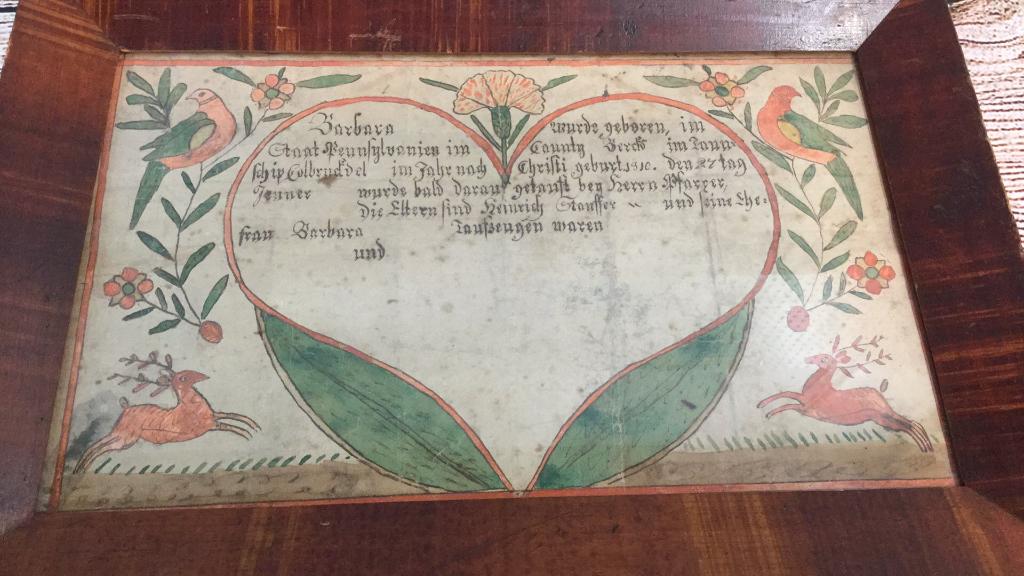 Barbara wurde geboren, im
Staat Pennsylvanien im Caunty Bercks im Taun-
schip Colbruckdel im Jahr nach Christi geburt 1810. den 27 tag
Jenner wurde bald darauf getauft bey Herrn Pfarrer,
die Eltern sind Heinrich Stauffer und seine Ehe-
frau Barbara Taufzeugen waren
und